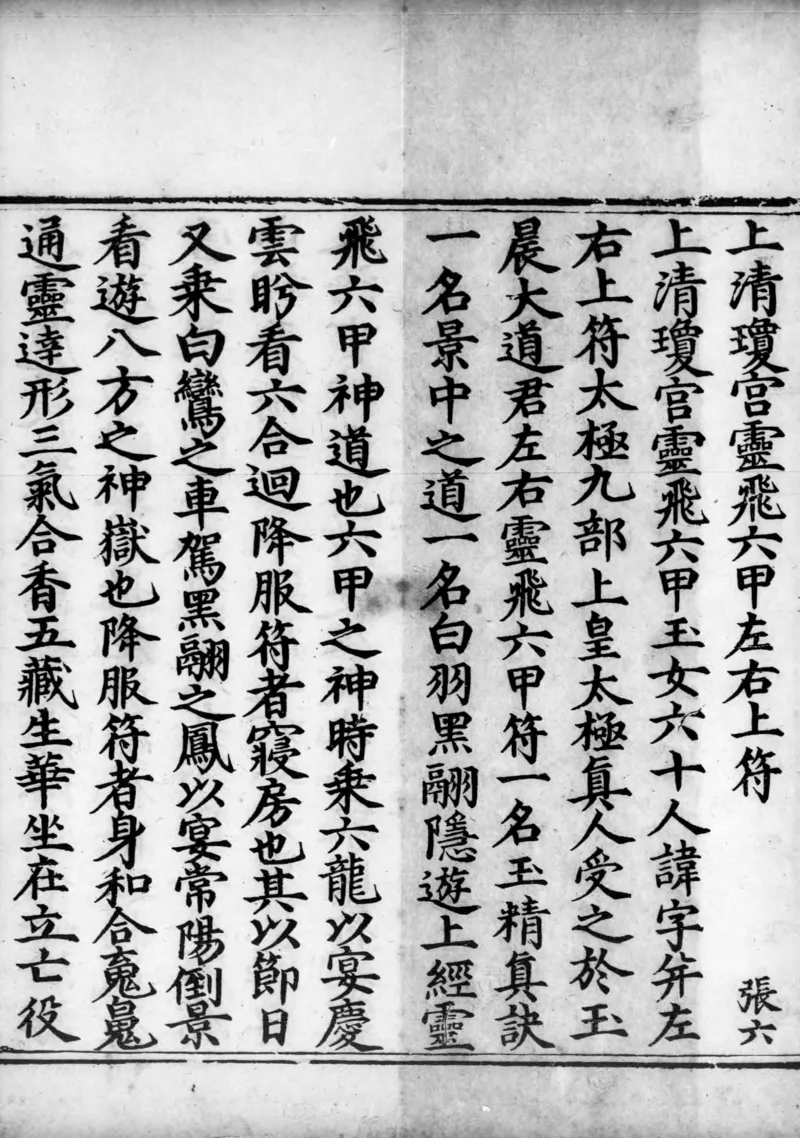 上清瓊宮靈飛六甲左右上符 張六
上清瓊宮靈飛六甲玉女六十人諱字并左
右上符太極九部上皇太極真人受之於玉
晨大道君左右靈飛六甲符一名玉精真訣
一名景中之道一名白羽黑翮隱遊上經靈
飛六甲神道也六甲之神時乘六龍以宴慶
雲眄看六合迴降服符者寢房也其以節日
又乘白鸞之車駕黑翮之鳳以宴常陽倒景
看遊八方之神嶽也降服符者身和合䰟㲋
通靈達形三氣合香五藏生華坐在立亡役